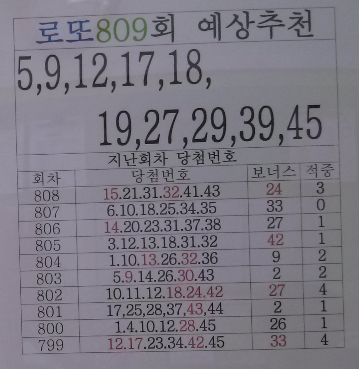 로또809회 예상추천
5,9,12,17,18,
19,27,29,39,45
지난회차 당첨번호
회차 당첨번호 보너스 적중
808 15.21.31.32.41.43 24 3
807 6.10.18.25.34.35 33 0
806 14.20.23.31.37.38 27 1
805 3.12.13.18.31.32 42 1
804 1.10.13.26.32.36 9 2
803 5.9.14.26.30.43 2 2
802 10.11.12.18.24.42 27 4
801 17,25,28,37,43,44 2 1
800 1.4.10.12.28.45 26 1
799 12.17.23.34.42.45 33 4